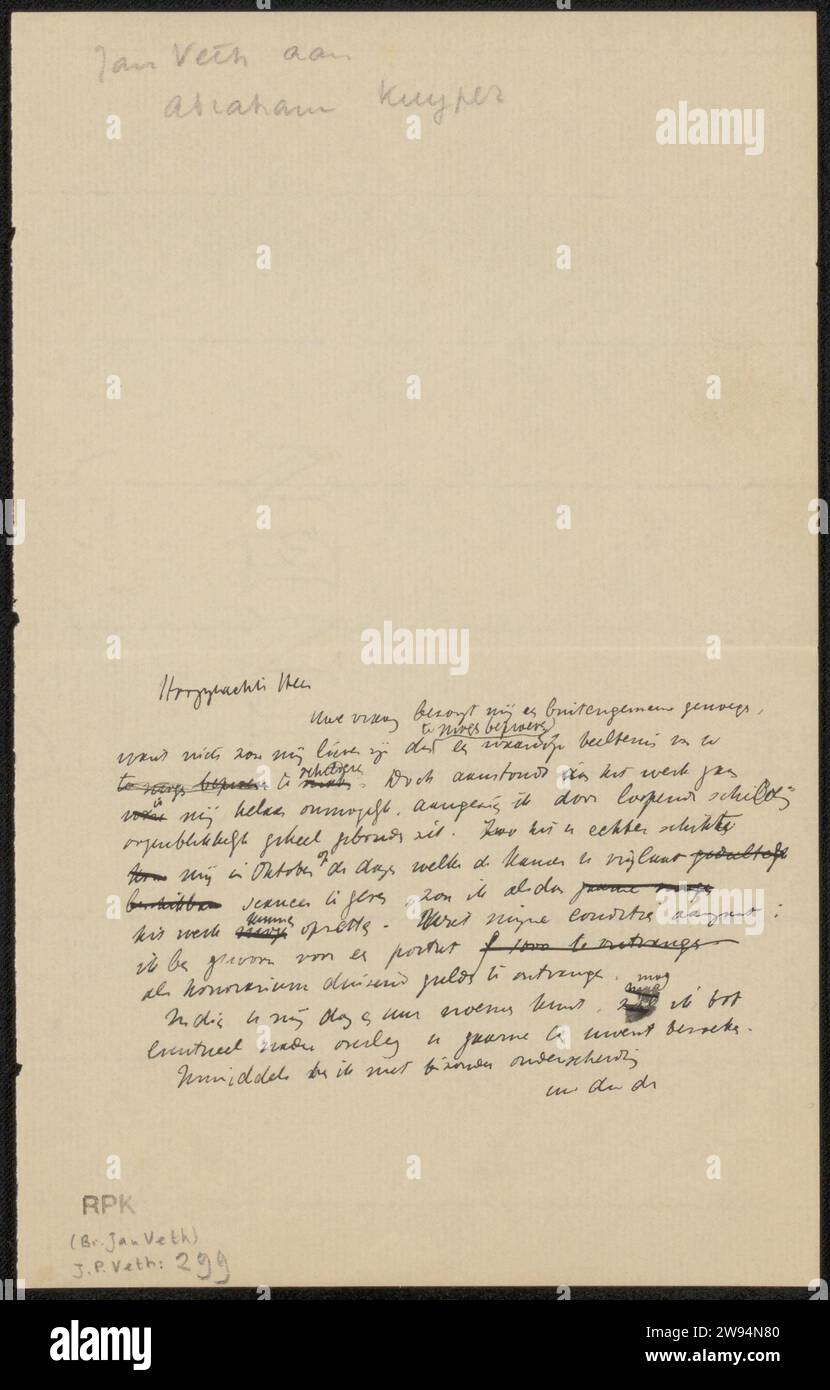 Jan Veth aan
Abraham Kuyper
alamy
Hooggeachte Heer
Uwe vraag bezorgt mij een buitengemeen genoegen,
te mogen beproeven
want niets zou mij liever zijn dan een waardige beeltenis van u
te mogen te schilderen. Doch aanstonds aan het werk gaan
is mij helaas onmogelijk, aangezien ik door loopende
oogenblikkelijk geheel gebonden zit. Zoo het u echter schikte
mij in Oktober of de dagen welke de Kamer u vrijlaat
seances te geven, zou ik alsdan gaarne
het werk kunnen opvatten. Wat mijne conditie aangaat:
ik ben gewoon voor een portret f 1000 te ontvangen
als honorarium duizend gulden te ontvangen.
mag
Indien u mij dag en uur noemen kunt, ik tot
eventueel nader overleg u gaarne te uwent bezoeken.
Inmiddels ben ik met bizondere onderscheiding
uw dw dr
RPK
(Br. Jan Veth)
J.P. Veth: 299
alamy
Image ID: 2W94N80
www.alamy.com